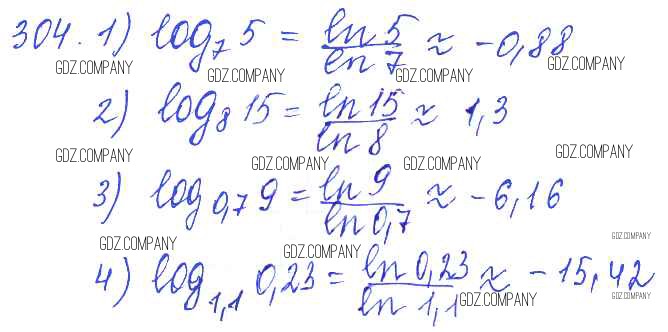 304. 1) log₇ 5 = ln 5 / ln 7 ≈ -0,88
GDZ.COMPANY GDZ.COMPANY GDZ.COMPANY GDZ.COMPANY
2) log₈ 15 = ln 15 / ln 8 ≈ 1,3
GDZ.COMPANY GDZ.COMPANY GDZ.COMPANY GDZ.COMPANY
3) log₀,₇ 9 = ln 9 / ln 0,7 ≈ -6,16
GDZ.COMPANY GDZ.COMPANY GDZ.COMPANY
4) log₁,₁ 0,23 = ln 0,23 / ln 1,1 ≈ -15,42
GDZ.COMPANY GDZ.COMPANY